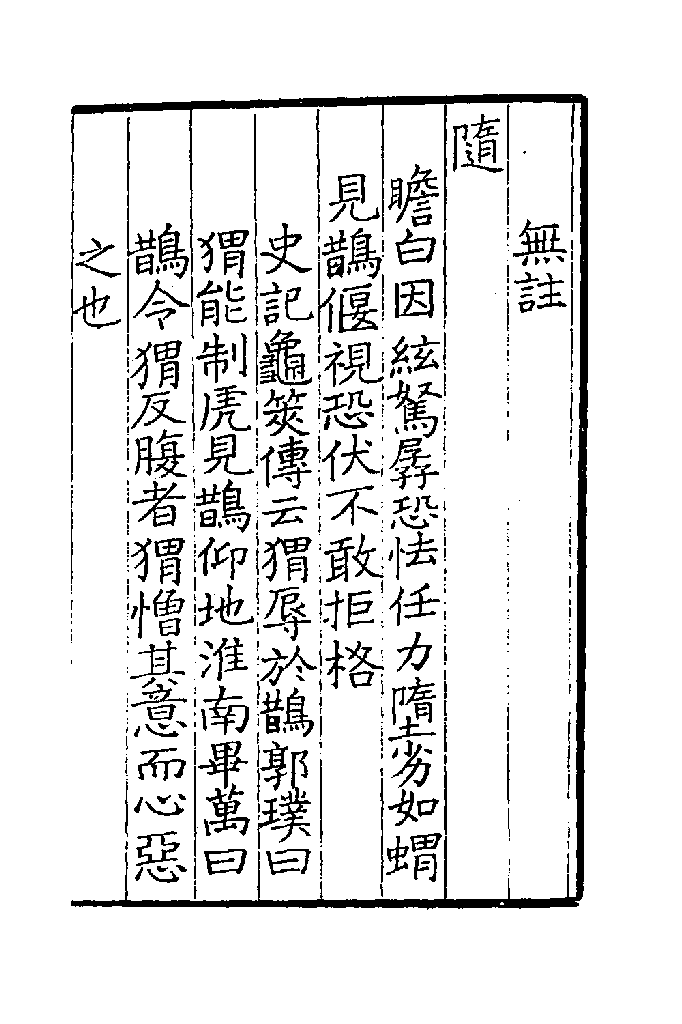 無註
隨
瞻白因絃駑孱恐怯任力隋劣如蝟
見鵲偃視恐伏不敢拒格
史記龜筴傳云猬辱於鵲郭璞曰
猬能制虎見鵲仰地淮南畢萬曰
鵲令猬反腹者猬憎其意而心惡
之也